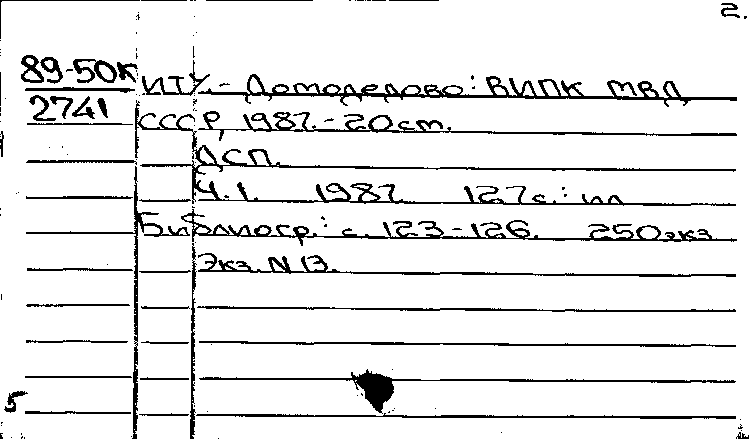 2.
89-50К ИТУ. - Домодедово: ВИПК МВД
2741 СССР, 1987. - 20 см.
ДСП.
Ч. 1. 1987. 127 с.: ил
Библиогр.: с. 123-126. 250 экз
Экз. N 13.
5